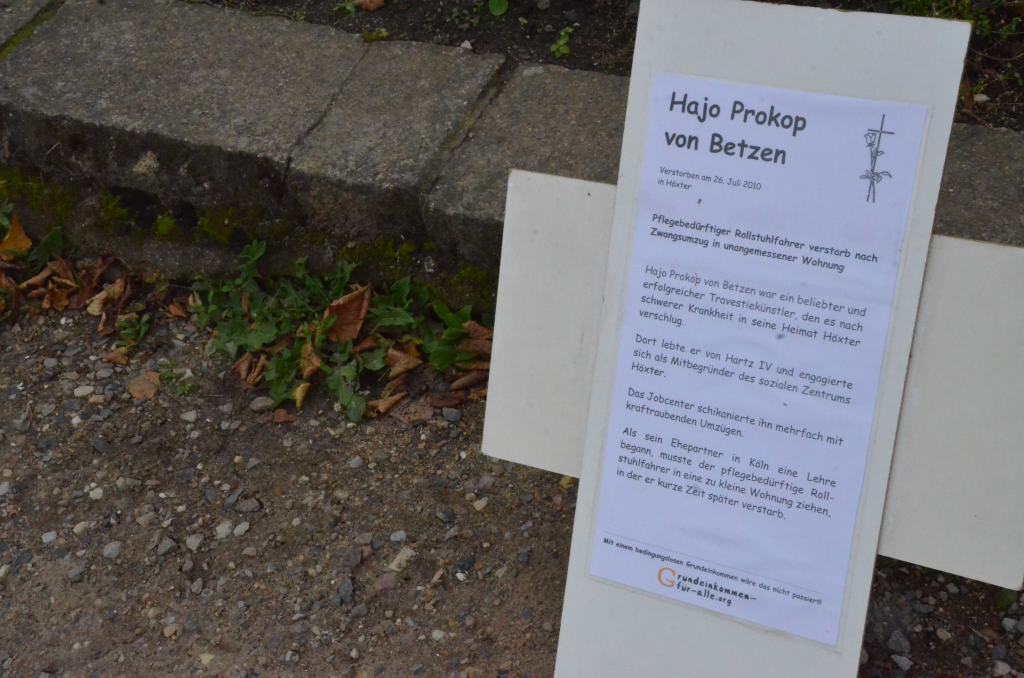 Hajo Prokop
von Betzen
Verstorben am 26. Juli 2010
in Höxter
Pflegebedürftiger Rollstuhlfahrer verstarb nach
Zwangsumzug in unangemessener Wohnung
Hajo Prokop von Betzen war ein beliebter und
erfolgreicher Travestiekünstler, den es nach
schwerer Krankheit in seine Heimat Höxter
verschlug.
Dort lebte er von Hartz IV und engagierte
sich als Mitbegründer des sozialen Zentrums
Höxter.
Das Jobcenter schikanierte ihn mehrfach mit
kraftraubenden Umzügen.
Als sein Ehepartner in Köln eine Lehre
begann, musste der pflegebedürftige Roll-
stuhlfahrer in eine zu kleine Wohnung ziehen,
in der er kurze Zeit später verstarb.
Mit einem bedingungslosen Grundeinkommen wäre das nicht passiert!
Grundeinkommen-
für-alle.org